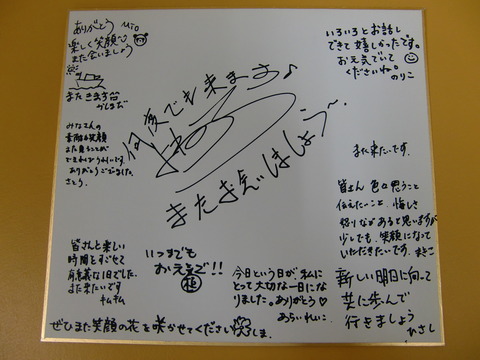 ありがとう MIO
楽しく笑顔で
また会いましょう
また きますね
みなさんの
素敵な笑顔
また見ることが
できればうれしいです。
ありがとうございました。
さとう
何度でも来ますよ♪
またお会いしましょう〜。
いろいろとお話し
できて嬉しかったです。
お元気でいて
くださいね。
のりこ
また来たいです。
皆さん 色々思うこと
伝えたいこと 悔しさ
怒りなどあると思いますが
少しでも、笑顔になって
いただきたいです。
皆さんと楽しい
時間をすごせて
有意義な1日でした。
また来たいです
いつまでも
お元気で!!
今日という日が、私に
とって大切な一日にな
りました。ありがとう♡
あらいれいこ
新しい明日に向って
共に歩んで
行きましょう
ひさし
ぜひまた笑顔の花を咲かせてください